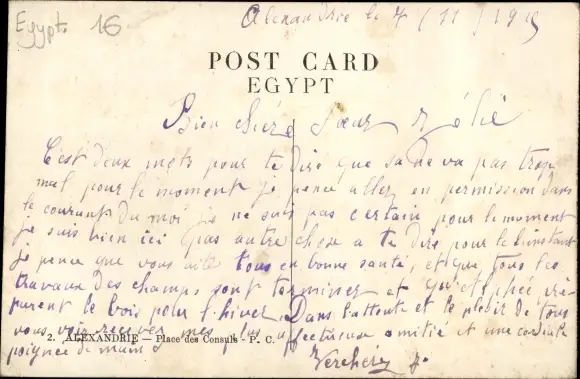 Egypte 16
Alexandrie le 4 / 11 / 19
POST CARD
EGYPT
Bien chére Sœur Zélie
C'est deux mots pour te dire que sa ne va pas trop
mal pour le moment je pence aller en permission dans
le courant du moi je ne suis pas certain pour le moment
je suis bien ici pas autre chose a te dire pour le linstant
je pence que vous ète tous en bonne santé, et que tous les
travaux des champs sont terminer et
parent le bois pour l'hiver Dans l'attente et le plésir de tous
vous voir recever mes plus affectueuse amitié et une cordiale
2. ALEXANDRIE — Place des Consuls - P. C.
poignée de mains